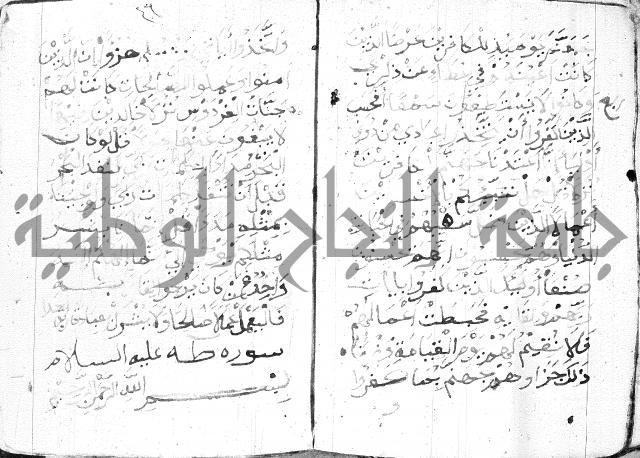 جهنم يومئذ للكافرين عرضا الذين
كانت اعينهم في غطاء عن ذكري
وكانوا لا يستطيعون سمعا افحسب
الذين كفروا ان يتخذوا عبادي من دوني
أولياء انا اعتدنا جهنم للكافرين
قل هل ننبئكم بالاخسرين
أعمالا الذين ضل سعيهم في الحياة
الدنيا وهم يحسبون أنهم يحسنون
صنعا أوليك الذين كفروا بايات
ربهم ولقايه فحبطت اعمالهم
فلا نقيم لهم يوم القيامة وزنا
ذلك جزاوهم جهنم بما كفروا
واتخذوا ايا هزوا ان الذين
امنوا وعملوا الصالحات كانت لهم
جنات الفردوس نزلا خالدين فيها
لا يبغون عنها قل لو كان
البحر لنفد البحر
قبل ان تنفد كلمات ربي ولو جينا
بمثله مددا قل انما انا بشر
مثلكم يوحى إلي انما الهكم اله
واحد فمن كان يرجوا لقا ربه
فليعمل عملا صالحا ولا يشرك بعبادة ربه احدا
سورة طه عليه السلام
بسم الله الرحمن الرحيم
جامعة النجاح الوطنية